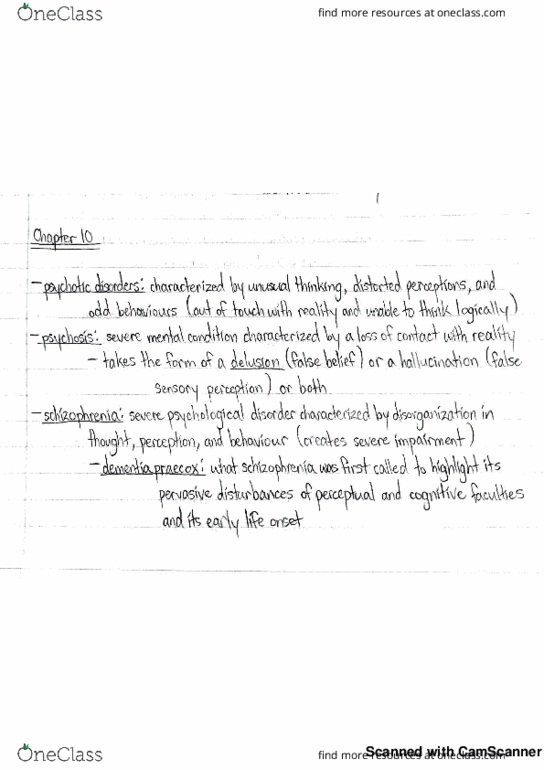 OneClass
find more resources at oneclass.com
Chapter 10
- psychotic disorders: characterized by unusual thinking, distorted perceptions, and
odd behaviours (out of touch with reality and unable to think logically)
- psychosis: severe mental condition characterized by a loss of contact with reality
- takes the form of a delusion (false belief) or a hallucination (false
sensory perception) or both
- schizophrenia: severe psychological disorder characterized by disorganization in
thought, perception, and behaviour (creates severe impairment)
- dementia praecox: what schizophrenia was first called to highlight its
pervasive disturbances of perceptual and cognitive faculties
and its early life onset
OneClass
find more resources at oneclass.com
Scanned with CamScanner